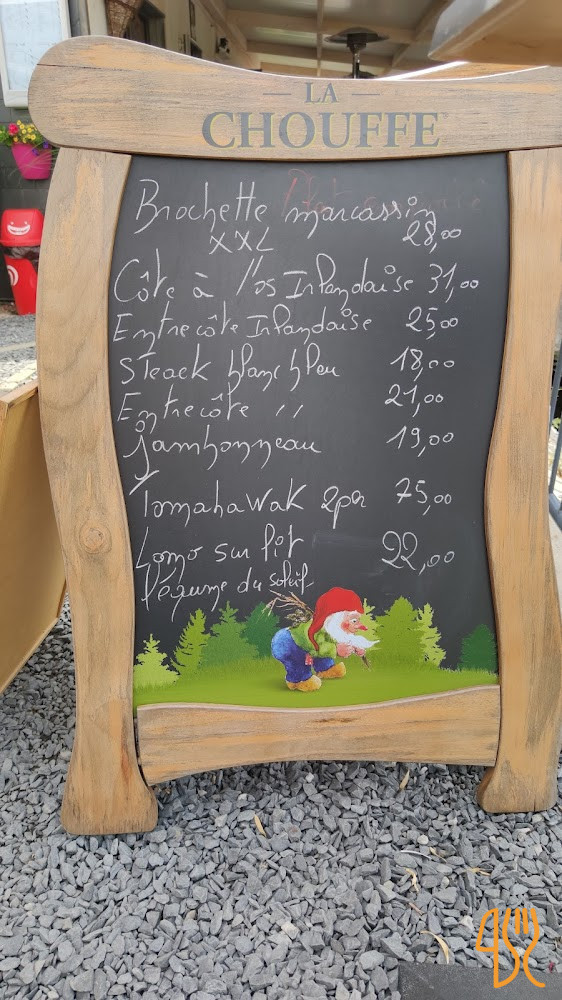 LA
CHOUFFE
Brochette marcassin
XXL 28,00
Côte à l'os Irlandaise 31,00
Entrecôte Irlandaise 25,00
Steack blanc bleu 18,00
Entrecôte " 21,00
Jambonneau 19,00
Tomahawak 2per 75,00
Lomo sur lit 22,00
légume du soleil